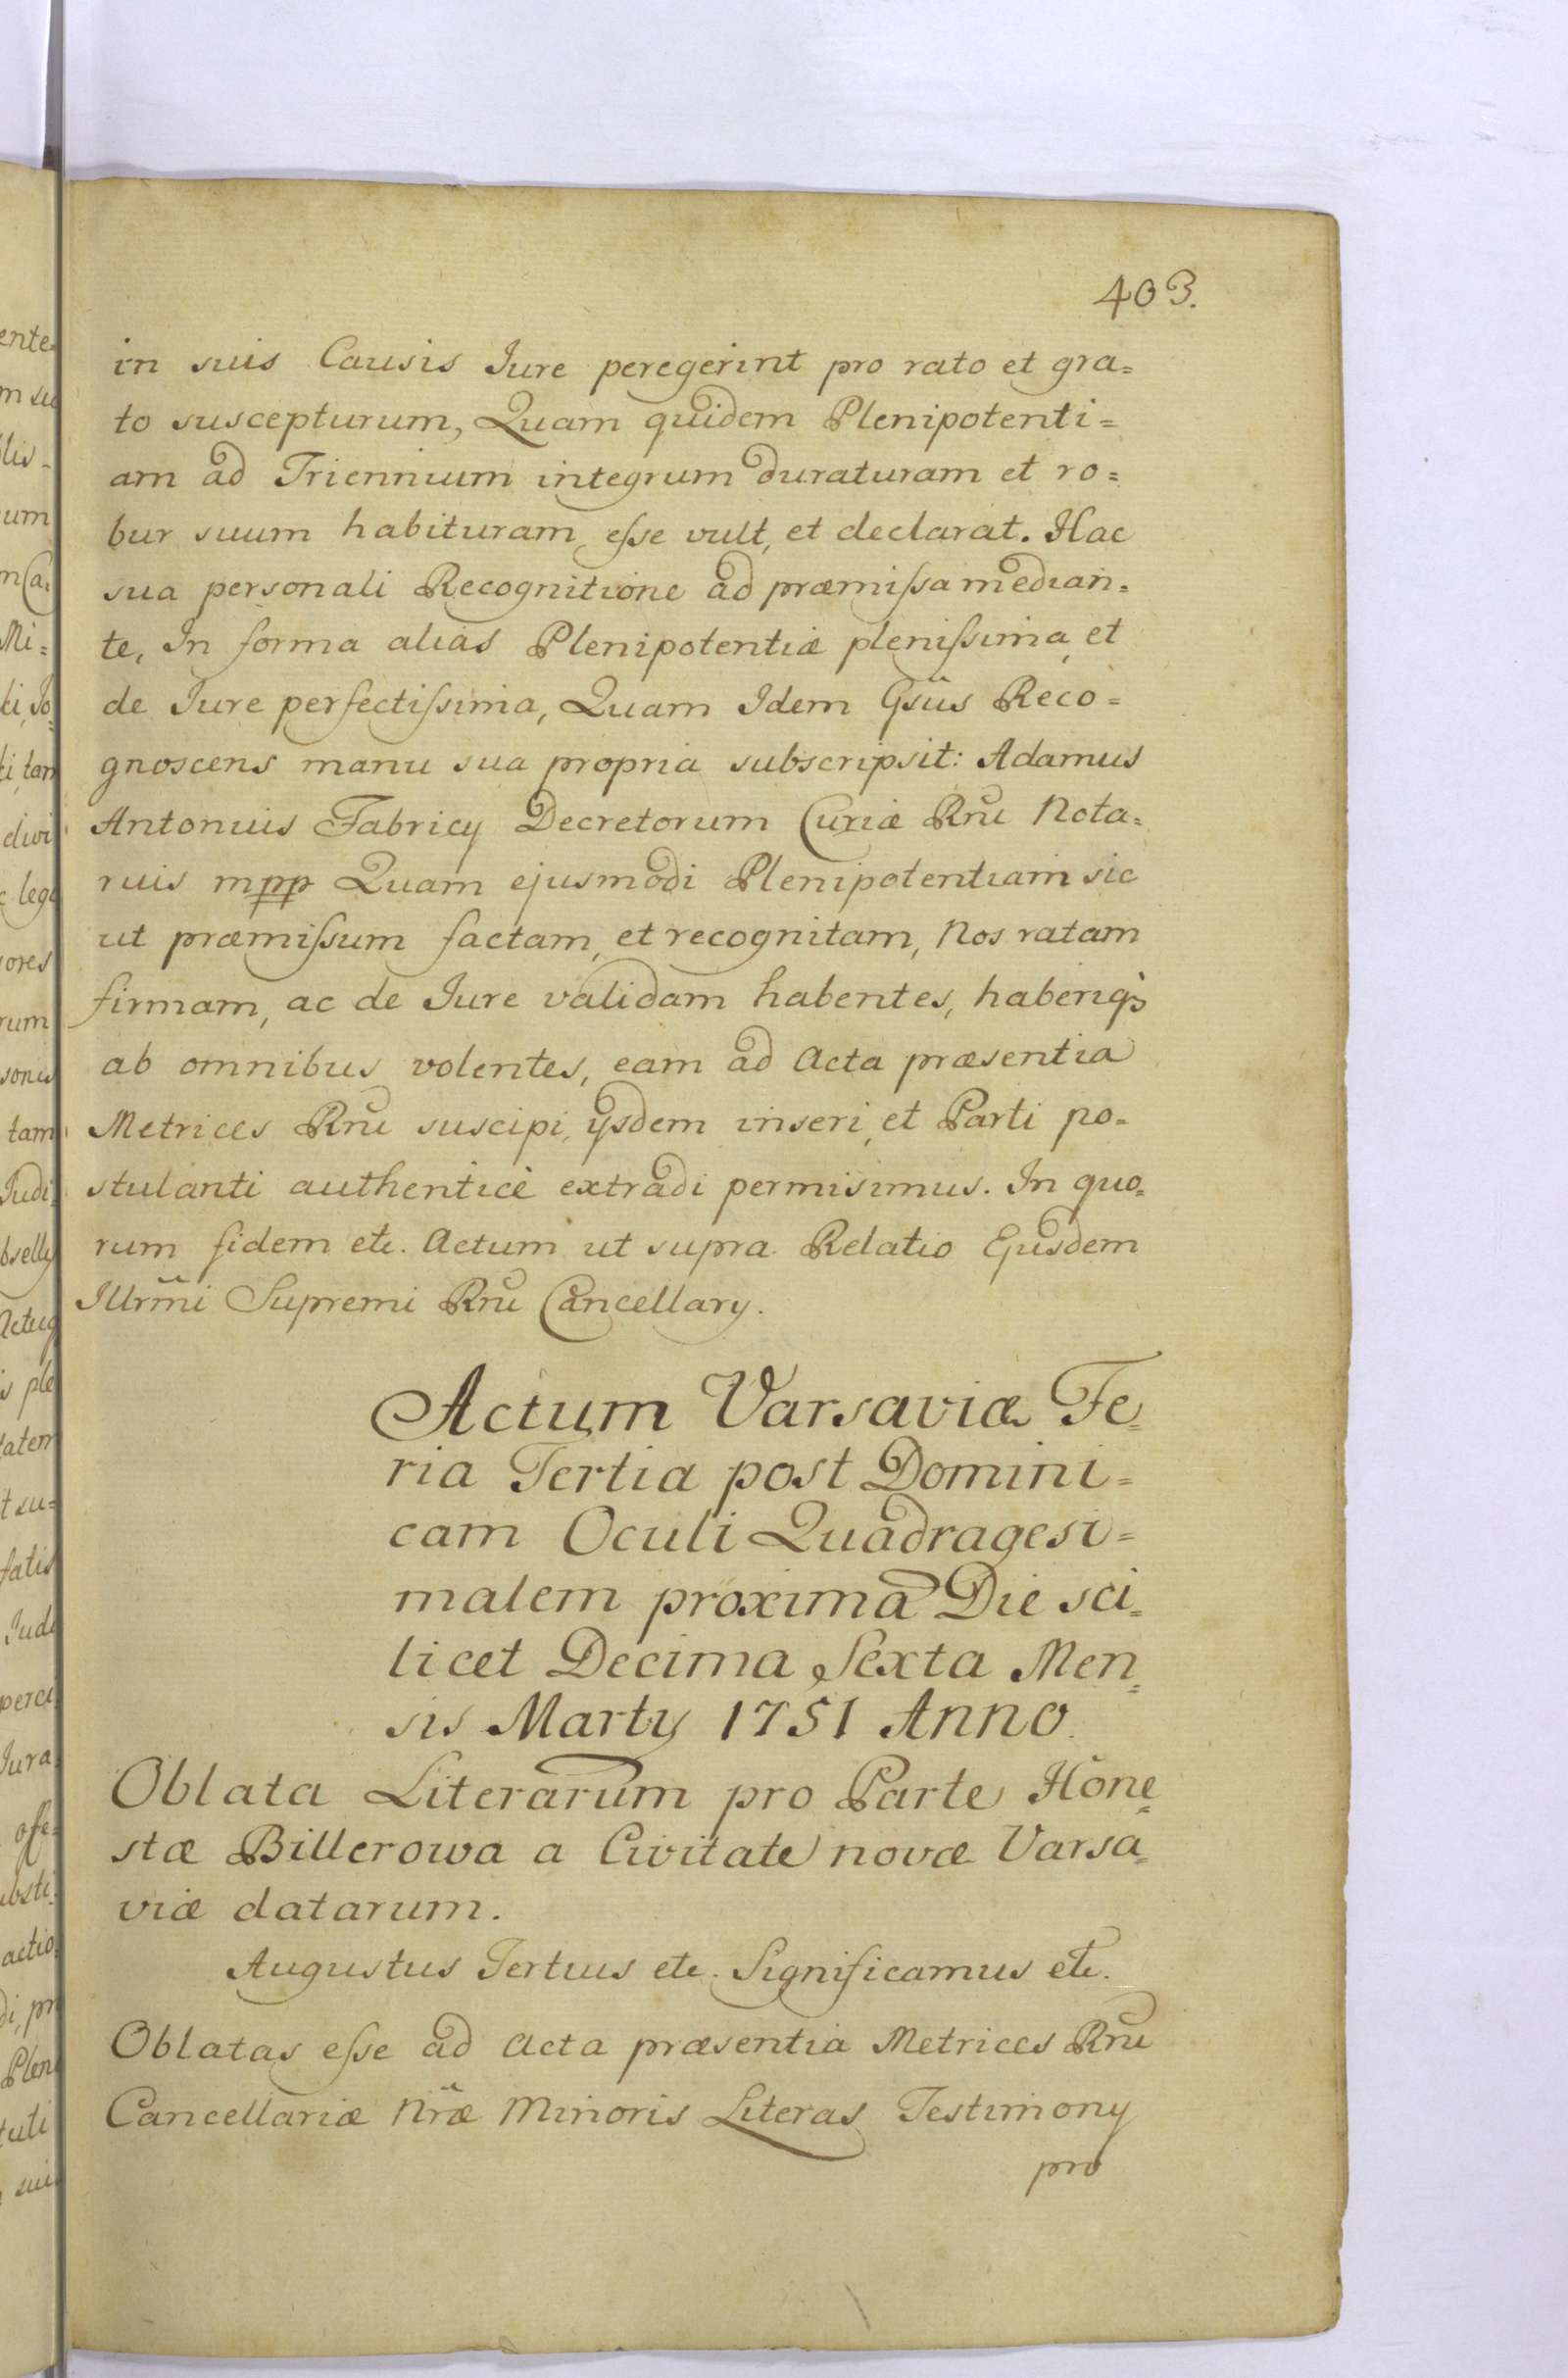 403.
in suis Causis Jure peregerint pro rato et gra=
to suscepturum, Quam quidem Plenipotenti=
am ad Triennium integrum duraturam et ro=
bur suum habituram esse vult, et declarat. Hac
sua personali Recognitione ad præmissa median=
te, In forma alias Plenipotentiæ plenissima, et
de Jure perfectissima, Quam Idem Gsũs Reco=
gnoscens manu sua propria subscripsit: Adamus
Antonius Fabricy Decretorum Curiæ Rñu Nota=
rius mpp Quam ejusmodi Plenipotentiam sic
ut præmissum factam, et recognitam, Nos ratam
firmam, ac de Jure validam habentes, haberiq3
ab omnibus volentes, eam ad Acta præsentia
Metrices Rñu suscipi, ijsdem inseri, et Parti po=
stulanti authenticè extradi permisimus. In quo=
rum fidem etc. Actum ut supra Relatio Ejusdem
Illrm̃i Supremi Rñu Cancellary.
Actum Varsaviæ Fe=
ria Tertia post Domini=
cam Oculi Quadragesi=
malem proxima Die sci=
licet Decima Sexta Men=
sis Marty 1751 Anno.
Oblata Literarum pro Parte Hone=
stæ Billerowa a Civitate novæ Varsa=
viæ datarum.
Augustus Tertius etc. Significamus etc.
Oblatas esse ad Acta præsentia Metrices Rñu
Cancellariæ Nr̃æ Minoris Literas Testimony
pro